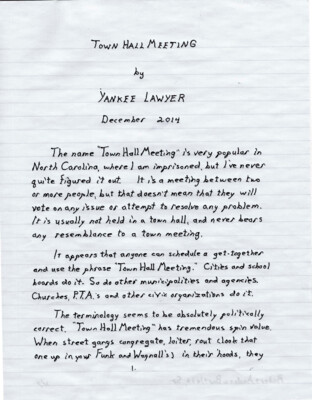 TOWN HALL MEETING
by
YANKEE LAWYER
December 2014
The name "Town Hall Meeting" is very popular in
North Carolina, where I am imprisoned, but I've never
quite figured it out. It is a meeting between two
or more people, but that doesn't mean that they will
vote on any issue or attempt to resolve any problem.
It is usually not held in a town hall, and never bears
any resemblance to a town meeting.
It appears that anyone can schedule a get-together
and use the phrase "Town Hall Meeting." Cities and school
boards do it. So do other municipalities and agencies.
Churches, P.T.A.'s and other civic organizations do it.
The terminology seems to be absolutely politically
correct. "Town Hall Meeting" has tremendous spin value.
When street gangs congregate, loiter, rout (look that
one up in your Funk and Wagnall's) in their hoods, they
1.